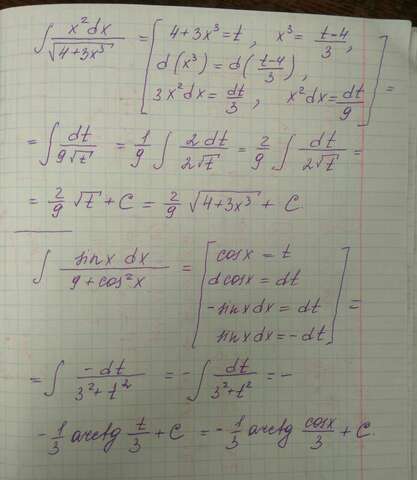 ∫ x²dx / √(4+3x³) = [ 4+3x³=t, x³ = (t-4)/3,
d(x³) = d((t-4)/3),
3x²dx = dt/3, x²dx = dt/9 ] =
= ∫ dt / 9√t = 1/9 ∫ 2dt / 2√t = 2/9 ∫ dt / 2√t =
= 2/9 √t + C = 2/9 √(4+3x³) + C.
∫ sinx dx / (9+cos²x) = [ cosx = t
dcosx = dt
-sinxdx = dt
sinxdx = -dt ] =
= ∫ -dt / (3²+t²) = - ∫ dt / (3²+t²) = -
- 1/3 arctg t/3 + C = - 1/3 arctg cosx/3 + C.